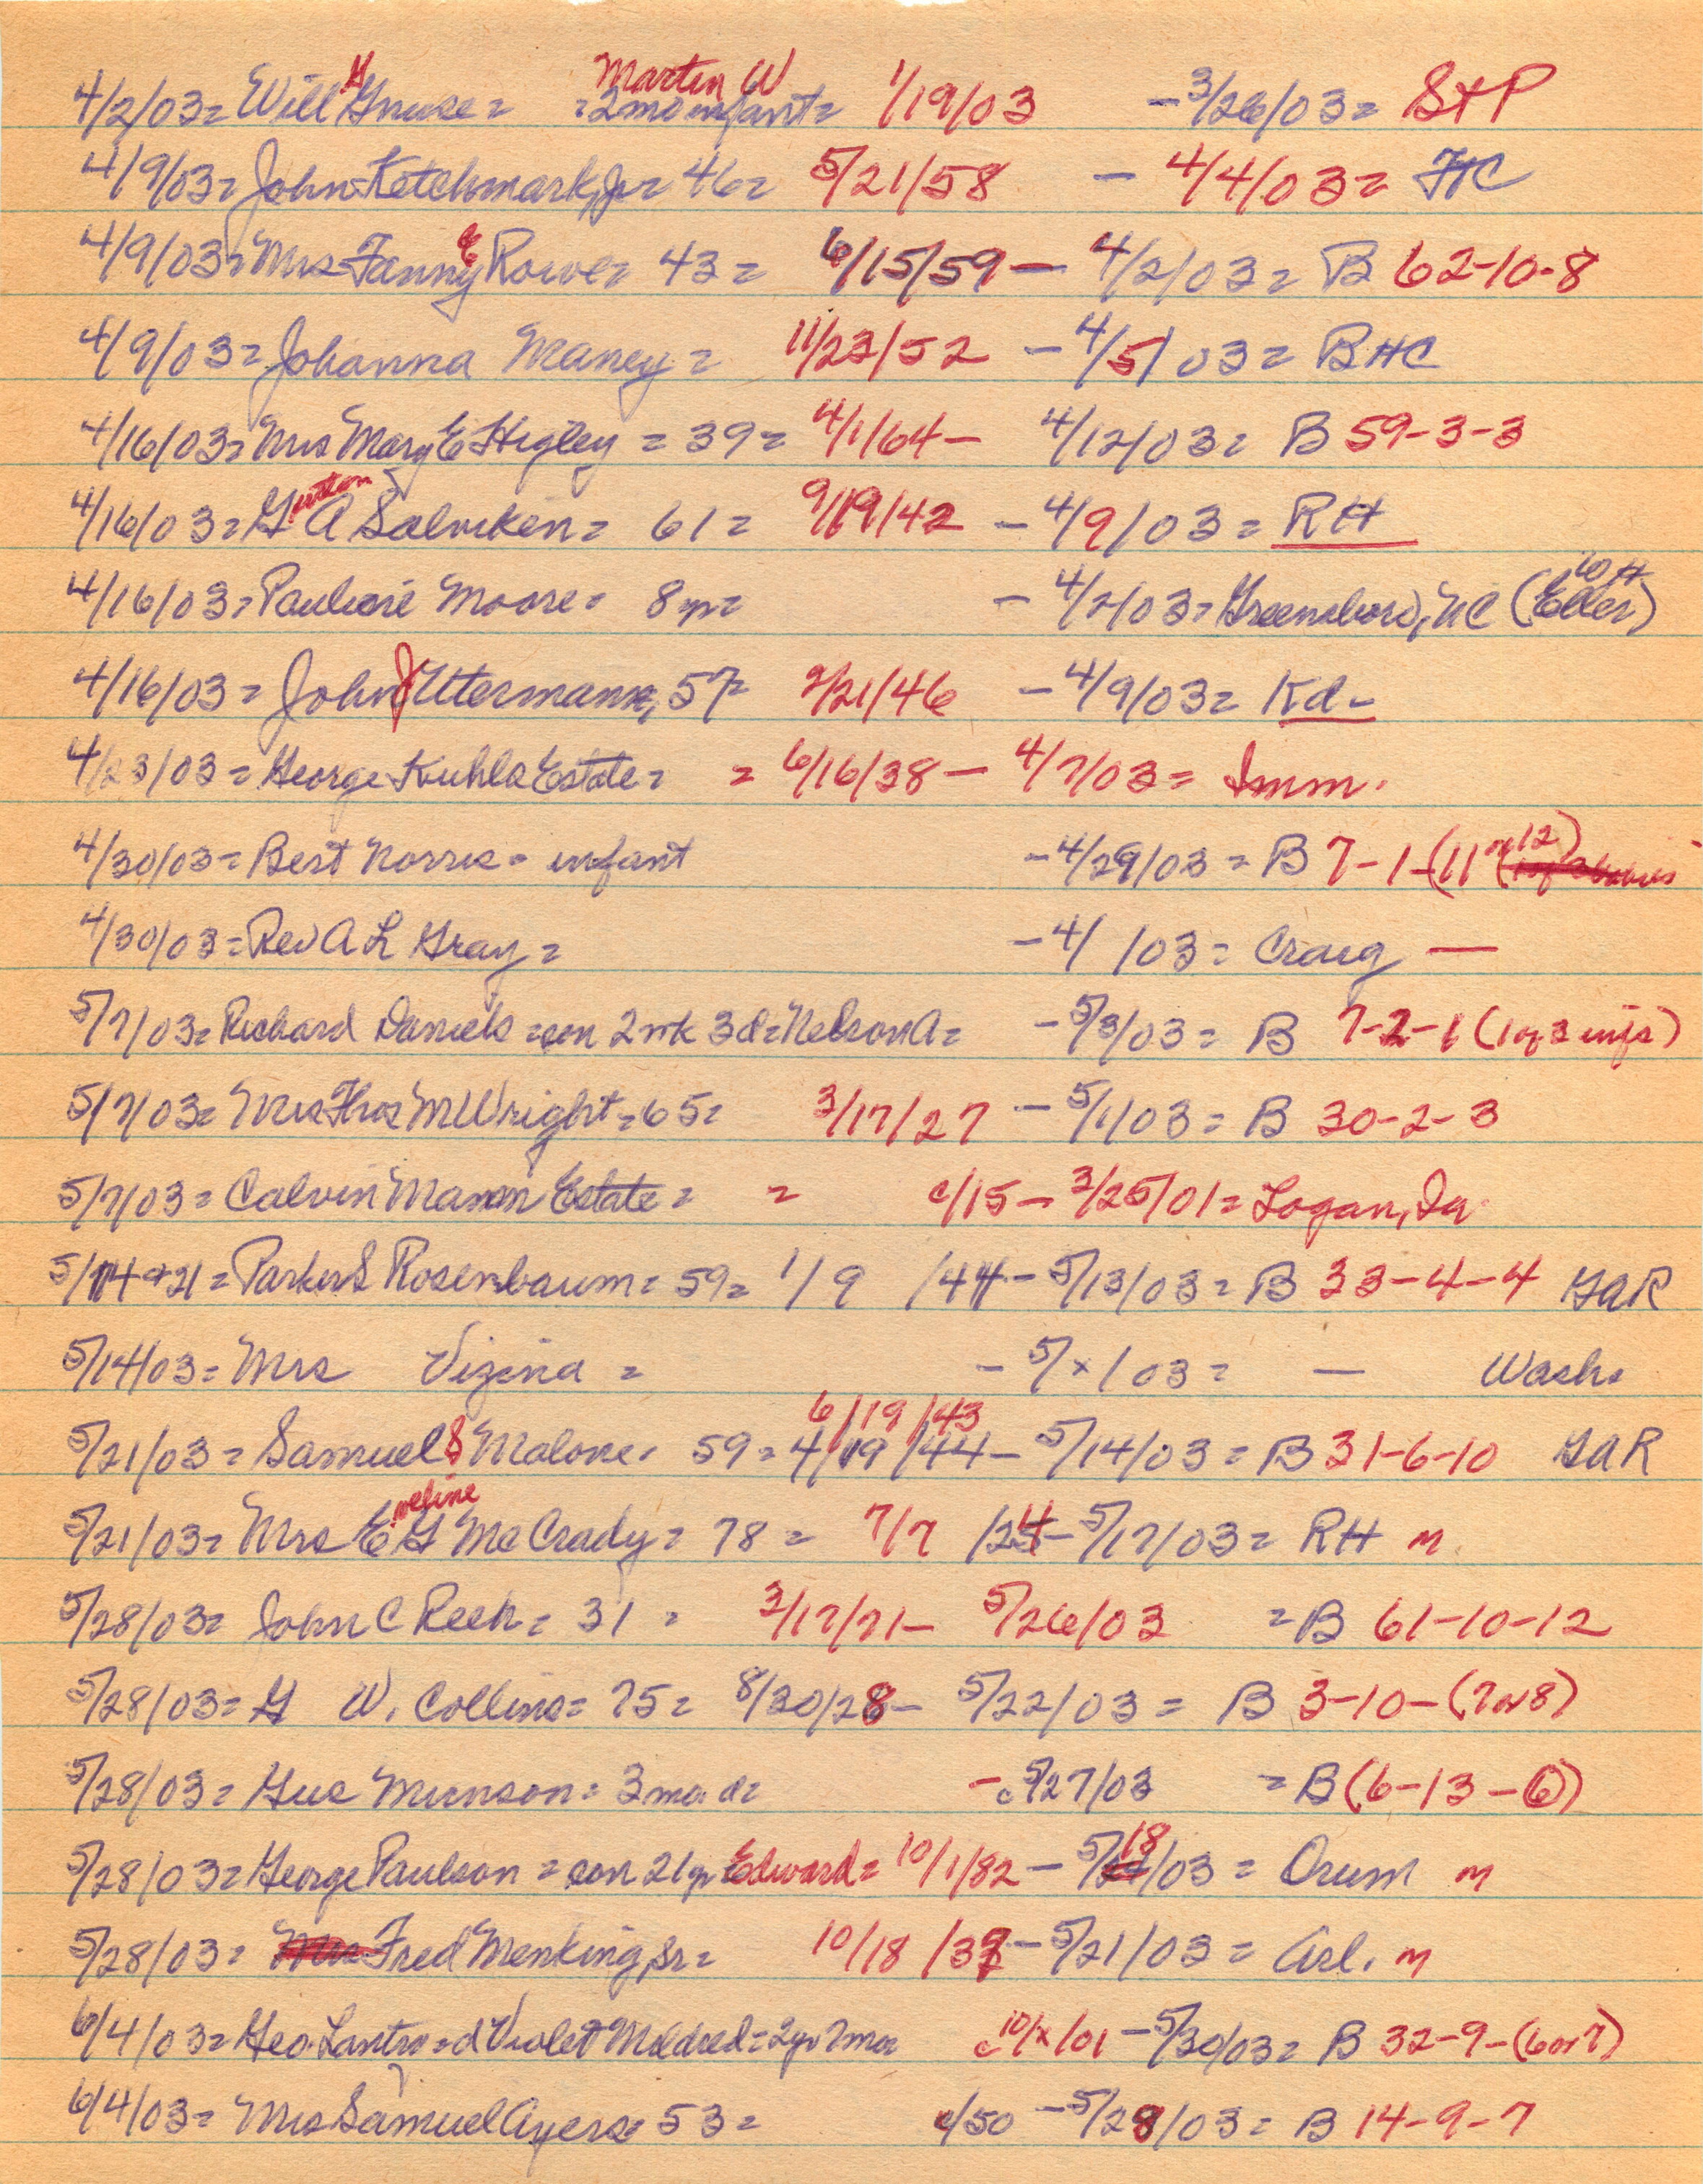 4/2/03= Will G Gruse= =2mo infant= Martin W 1/19/03 -3/26/03= S+P
4/9/03= John Ketchmark, Jr= 46= 5/21/58 - 4/4/03= FTC
4/9/03= Mrs Fanny E Rowe= 43= 6/15/59 - 4/2/03= B 62-10-8
4/9/03= Johanna Maney= 11/23/52 -4/5/03= BHC
4/16/03= Mrs Mary E Higley = 39= 4/1/64- 4/12/03= B 59-3-3
4/16/03= G A Solviken= 61= 9/19/42 -4/9/03= RH
4/16/03= Pauline Moore= 8 yr= -4/2/03= Greensboro, NC (W H Eller)
4/16/03= John J Utermann, 57= 2/21/46 -4/9/03= Kd-
4/23/03= George Kuhls Estate= = 6/16/38 - 4/7/03= Imm.
4/30/03= Bert Norris= infant -4/29/03 = B 7-1-(11 or 12)
4/30/03= Rev A L Gray= -4/ /03= Craig —
5/7/03= Richard Daniels =son 2wk 3d=Nelson A= -5/3/03= B 7-2-1 (1 of 3 infs)
5/7/03= Mrs Thos M Wright=65= 3/17/27 -5/1/03= B 30-2-3
5/7/03= Calvin Mann Estate= = c/15 - 3/25/01= Logan, Ia.
5/14+21= Parker S Rosenbaum= 59= 1/9 /44-5/13/03= B 33-4-4 GAR
5/14/03= Mrs Vizina = - 5/x/03= — Wash.
5/21/03= Samuel S Malone= 59= 6/19/43 4/19/44- 5/14/03= B 31-6-10 GAR
5/21/03= Mrs Eveline G McCrady= 78= 7/7 /24-5/17/03= RH m
5/28/03= John C Reeh= 31= 3/17/71- 5/26/03 =B 61-10-12
5/28/03= G W. Collins= 75= 8/30/28- 5/22/03= B 3-10-(7 or 8)
5/28/03= Gus Munson= 3 mo d= - c5/27/03 =B (6-13-6)
5/28/03= George Paulson= son 21 yr Edward= 10/1/82 - 5/18/03= Orum m
5/28/03= Fred Menking, Sr= 10/18 /37-5/21/03= Arl. m
6/4/03= Geo. Lantry=d Violet Mildred=2yr 7mo c10/x/01 -5/30/03= B 32-9-(6 or 7)
6/4/03= Mrs Samuel Ayers= 53= c/50 -5/28/03= B 14-9-7